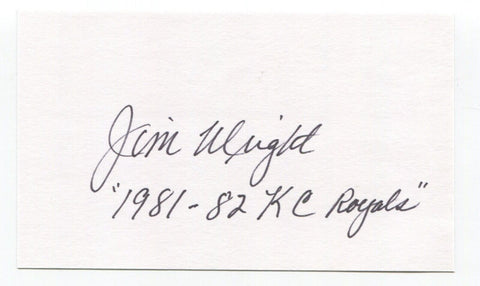 Jim Wright
"1981-82 KC Royals"